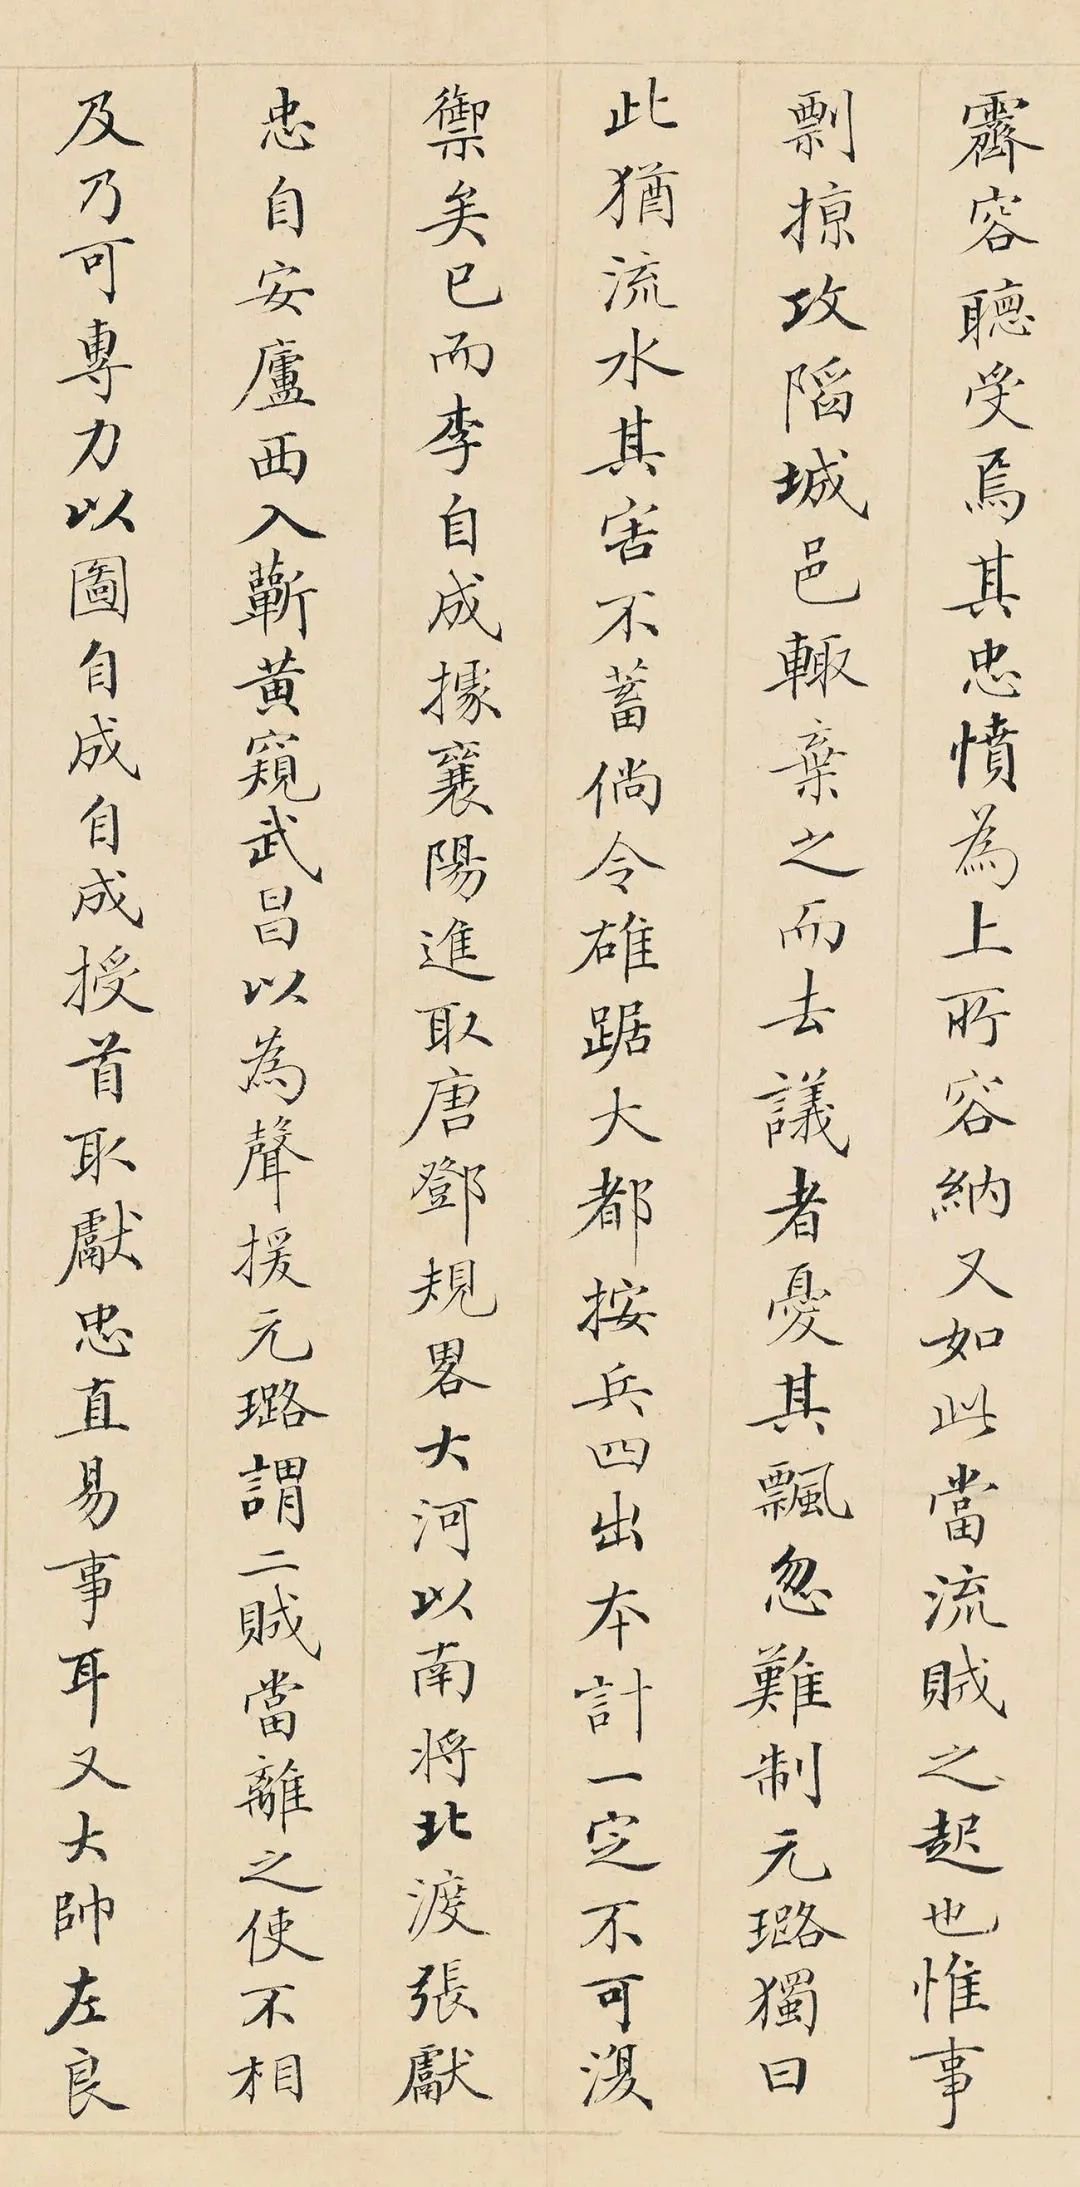 霽容聽受焉其忠憤為上所容納又如此當流賊之起也惟事
剽掠攻陷城邑輒棄之而去議者憂其飄忽難制元璐獨曰
此猶流水其害不蓄倘令雄踞大都按兵四出本計一定不可復
禦矣已而李自成據襄陽進取唐鄧規畧大河以南將北渡張獻
忠自安廬西入蘄黃窺武昌以為聲援元璐謂二賊當離之使不相
及乃可專力以圖自成自成授首取獻忠直易事耳又大帥左良